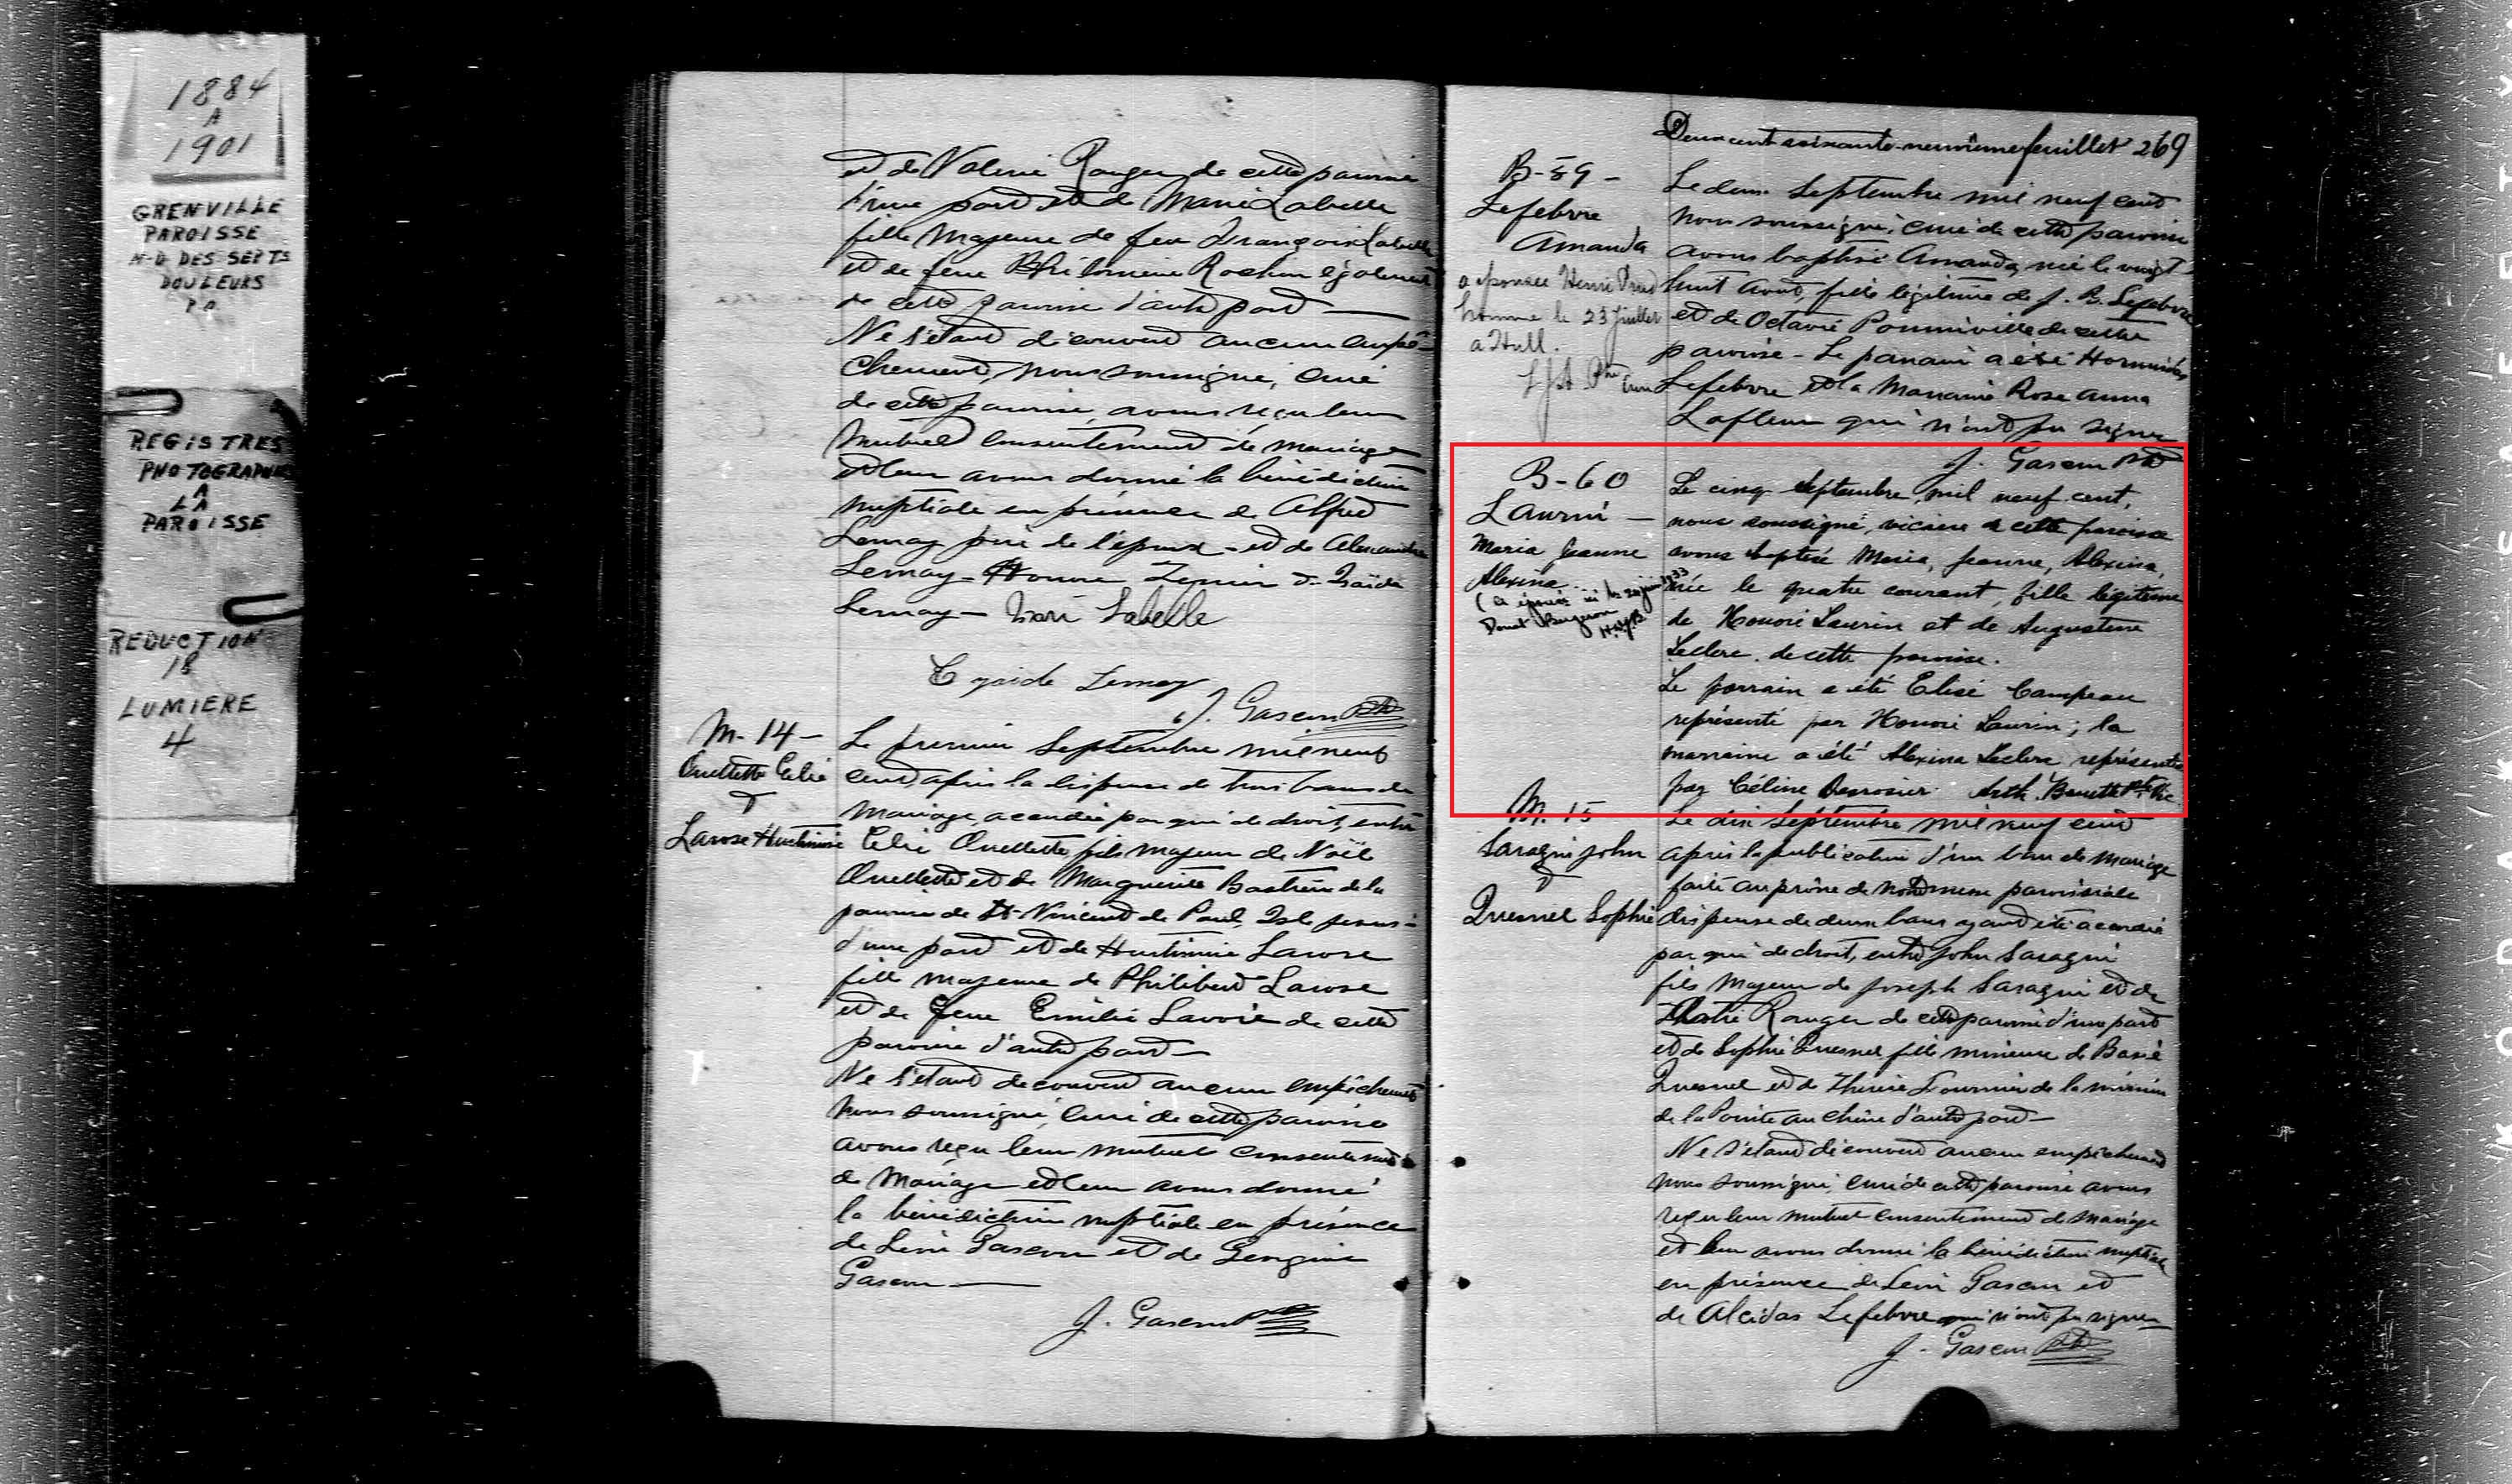 1884
A
1901
GRENVILLE
PAROISSE
N-D DES SEPTS
DOULEURS
P.Q.
REGISTRES
PHOTOGRAPHIE
A
LA
PAROISSE
REDUCTION
18
LUMIERE
4
et de Valerie Rouger de cette paroisse
d'une part et de Marie Labelle
fille majeure de feu François Labelle
et de feue Philomène Rochon également
de cette paroisse d'autre part —
Ne s'étant découvert aucun empê-
chement, nous soussigné, curé
de cette paroisse, avons reçu leur
mutuel consentement de mariage
et leur avons donné la bénédiction
nuptiale en présence de Alfred
Lemay père de l'époux - et de Alexandre
Lemay -
Lemay -
Labelle
Lemay
J. Gascon Ptre
M-14-
Ouellette Celié
&
Larose
Le premier Septembre mil neuf
cent, après la dispense de trois bans de
mariage, accordée par qui de droit, entre
Celié Ouellette fils majeur de Noël
Ouellette et de Marguerite Bastien de la
paroisse de St-Vincent de Paul, Isle Jésus -
d'une part et de Larose
fille majeure de Philibert Larose
et de feue Emélie Lavoie de cette
paroisse d'autre part —
Ne s'étant découvert aucun empêchement
nous soussigné, curé de cette paroisse
avons reçu leur mutuel consentement
de mariage et leur avons donné
la bénédiction nuptiale en présence
de Levi Gascon et de Georgine
Gascon —
J. Gascon Ptre
Deux cent soixante-neuvième feuillet 269
B-59-
Lefebvre
Amanda
a épousé Henri Prud
homme le 23 juillet
a Hull.
Le deux Septembre mil neuf cent
nous soussigné, curé de cette paroisse
avons baptisé Amanda, née le vingt-
huit août, fille légitime de J. B. Lefebvre
et de Octavie Pominville de cette
paroisse - Le parrain a été Hormidas
Lefebvre et la Marraine Rose Anna
Lafleur qui n'ont pu signer
J. Gascon Ptre
B-60
Laurin —
Maria Jeanne
Alexina
(a épousé ici le 24 juin 1933
Donat Bergeron
Le cinq septembre, mil neuf cent,
nous soussigné, vicaire de cette paroisse
avons baptisé Maria, Jeanne, Alexina,
née le quatre courant, fille légitime
de Honoré Laurin et de Augustine
Leclerc. de cette paroisse.
Le parrain a été Elisé Campeau
représenté par Honoré Laurin; la
marraine a été Alexina Leclerc représentée
par Céline Desrosier. Arth. Ptre Vic.
M-15
Saragin John
&
Quesnel Sophie
Le dix Septembre mil neuf cent
après la publication d'un ban de mariage
faite au prône de notre messe paroissiale
dispense de deux bans ayant été accordée
par qui de droit, entre John Saragin
fils majeur de Joseph Saragin et de
Rouger de cette paroisse d'une part
et de Sophie Quesnel fille mineure de Basile
Quesnel et de Thérèse Fournier de la mission
de la Pointe au Chêne d'autre part —
Ne s'étant découvert aucun empêchement
nous soussigné, curé de cette paroisse avons
reçu leur mutuel consentement de mariage
et leur avons donné la bénédiction nuptiale
en présence de Levi Gascon et
de Alcidas Lefebvre qui n'ont pu signer
J. Gascon Ptre